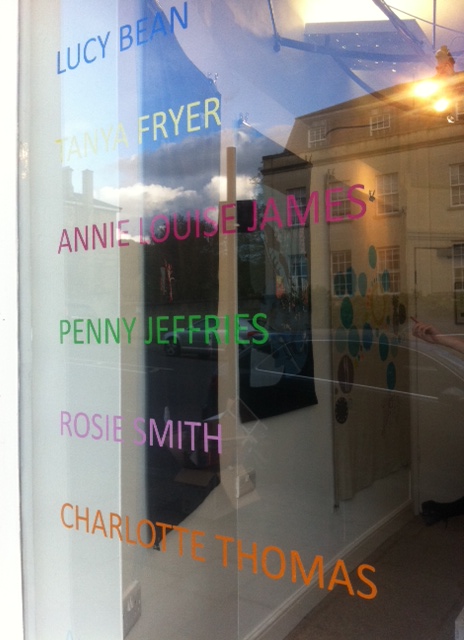 LUCY BEAN
TANYA FRYER
ANNIE LOUISE JAMES
PENNY JEFFRIES
ROSIE SMITH
CHARLOTTE THOMAS